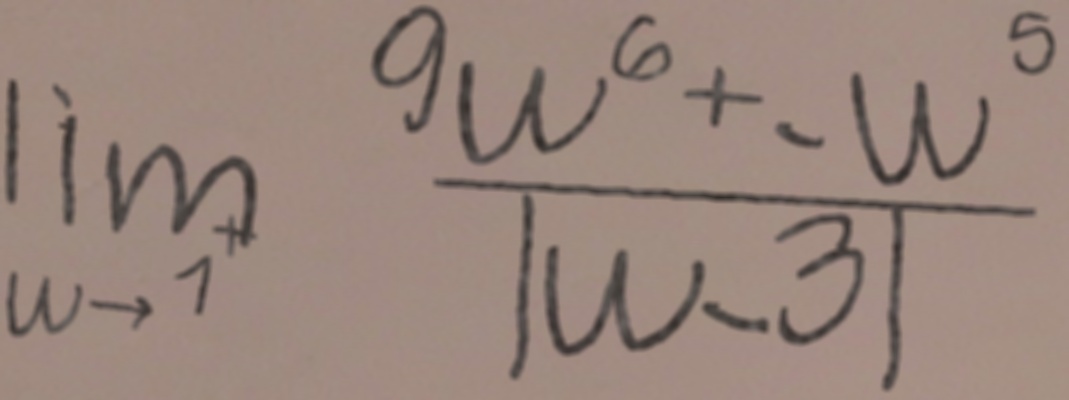 \lim_{w \to 1^+} \frac{9w^6 + -w^5}{|w - 3|}